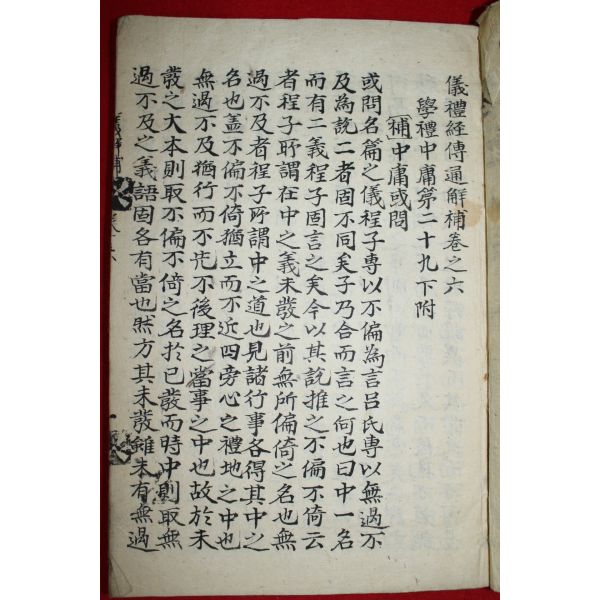 儀禮經傳通解補卷之六
學禮中庸第二十九下附
補中庸或問
或問名篇之儀程子專以不偏為言呂氏專以無過不
及為說二者固不同矣子乃合而言之何也曰中一名
而有二義程子固言之矣今以其說推之不偏不倚云
者程子所謂在中之義未發之前無所偏倚之名也無
過不及者程子所謂中之道也見諸行事各得其中之
名也盖不偏不倚猶立而不近四旁心之禮地之中也
無過不及猶行而不先不後理之當事之中也故於未
發之大本則取不偏不倚之名於已發而時中則取無
過不及之義語固各有當也然方其未發雖未有無過